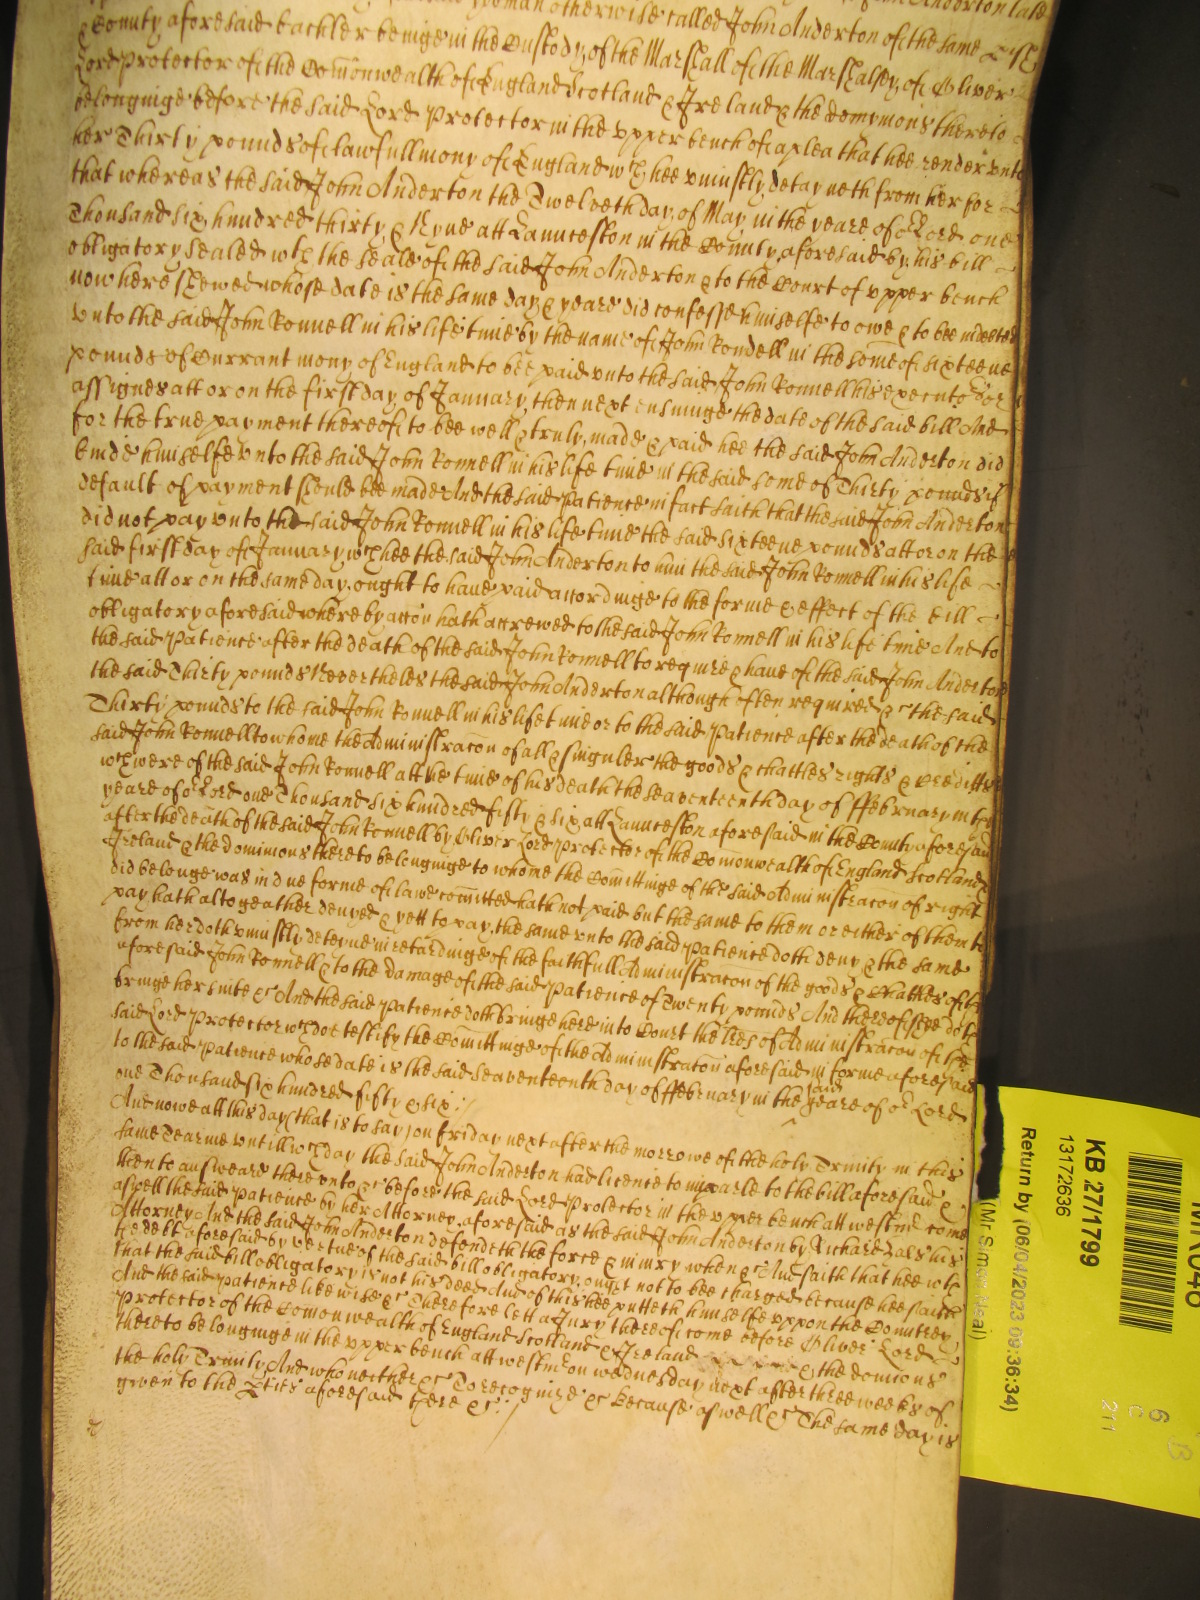 yoman otherwise called John Anderton of the same
County aforesaid tackler beinge in the Custody of the Marshall of the Marshalsey of Oliver
Lord Protector of the Com̄onwealth of England Scotland & Ireland & the domynions thereto
belonginge before the said Lord Protector in the upper bench of a plea that hee render unto
her Thirty pounds of lawfull mony of England wᶜʰ hee uniustly detayneth from her for
that whereas the said John Anderton the Twelveth day of May in the yeare of oʳ Lord one
Thousand six hundred thirty & Nyne att Launceston in the County aforesaid by his bill
obligatory sealed wᵗʰ the seale of the said John Anderton & to the Court of upper bench
now here shewed whose date is the same day & yeare did confesse himselfe to owe & to bee indebted
unto the said John Ronnell in his life time by the name of John Rondell in the some of sixteene
pounds of Currant mony of England to bee paid unto the said John Ronnell his executoʳ or
assignes att or on the first day of January then next ensuinge the date of the said bill And
for the true payment thereof to bee well & truly made & paid hee the said John Anderton did
binde himselfe unto the said John Ronnell in his life time in the said some of Thirty pounds if
default of payment should bee made And the said Patience in fact saith that the said John Anderton
did not pay unto the said John Ronnell in his life time the said sixteene pounds att or on the
said first day of January wᶜʰ hee the said John Anderton to him the said John Ronnell in his life
time att or on the same day ought to have paid accordinge to the forme & effect of the bill
obligatory aforesaid whereby acc̄on hath accrewed to the said John Ronnell in his life time And to
the said Patience after the death of the said John Ronnell to require & have of the said John Anderton
the said Thirty pounds Neverthelesse the said John Anderton although often required &c the said
Thirty pounds to the said John Ronnell in his life time or to the said Patience after the death of the
said John Ronnell to whome the Administrac̄on of all & singuler the goods & chattles rights & creditts
wᶜʰ were of the said John Ronnell att the time of his death the seaventeenth day of ffebruary in the
yeare of oʳ Lord one Thousand six hundred fifty & six att Launceston aforesaid in the County aforesaid
after the death of the said John Ronnell by Oliver Lord Protector of the Com̄onwealth of England Scotland &
Ireland & the dominions thereto belonginge to whome the Com̄ittinge of the said Administrac̄on of right
did belonge was in due forme of lawe com̄itted hath not paid but the same to them or either of them to
pay hath altogeather denyed & yett to pay the same unto the said Patience doth deny & the same
from her doth uniustly deteyne in retardinge of the faithfull Administrac̄on of the goods & Chattles of the
aforesaid John Ronnell & to the damage of the said Patience of Twenty pounds And thereof shee doth
bringe her suite &c And the said Patience doth bringe here into Court the l̄res of Administrac̄on of the
said Lord Protector wᶜʰ doe testify the Com̄ittinge of the Administrac̄on aforesaid in forme aforesaid
to the said Patience whose date is the said seaventeenth day of ffebruary in the said yeare of oʳ Lord
one Thousand six hundred fifty & six:/
And nowe att this day (that is to say) on friday next after the morrowe of the holy Trinity in this
same Tearme untill wᶜʰ day the said John Anderton had licence to imparle to the bill aforesaid &
then to answeare there unto &c before the said Lord Protector in the upper bench att westm̄ come
aswell the said Patience by her Attorney aforesaid as the said John Anderton by Richard his
Attorney And the said John Anderton defendeth the force & iniury when &c And saith that hee wᵗʰ
the debt aforesaid by vertue of the said bill obligatory ought not to bee charged because hee saith
that the said bill obligatory is not his deed And of this hee putteth himselfe uppon the Countrey
And the said Patience likewise &c Therefore lett a Jury thereof come before Oliver Lord
Protector of the Com̄onwealth of England Scotland & Ireland & the domions
thereto belonginge in the upper bench att westm̄ on wednesday next after three weeks of
the holy Trinity And who neither &c To recognize &c Because aswell &c The same day is
given to the p̄ties aforesaid there &c:/
KB 27/1799
13172636
Return by (06/04/2023 09:36:34)
6
C
211